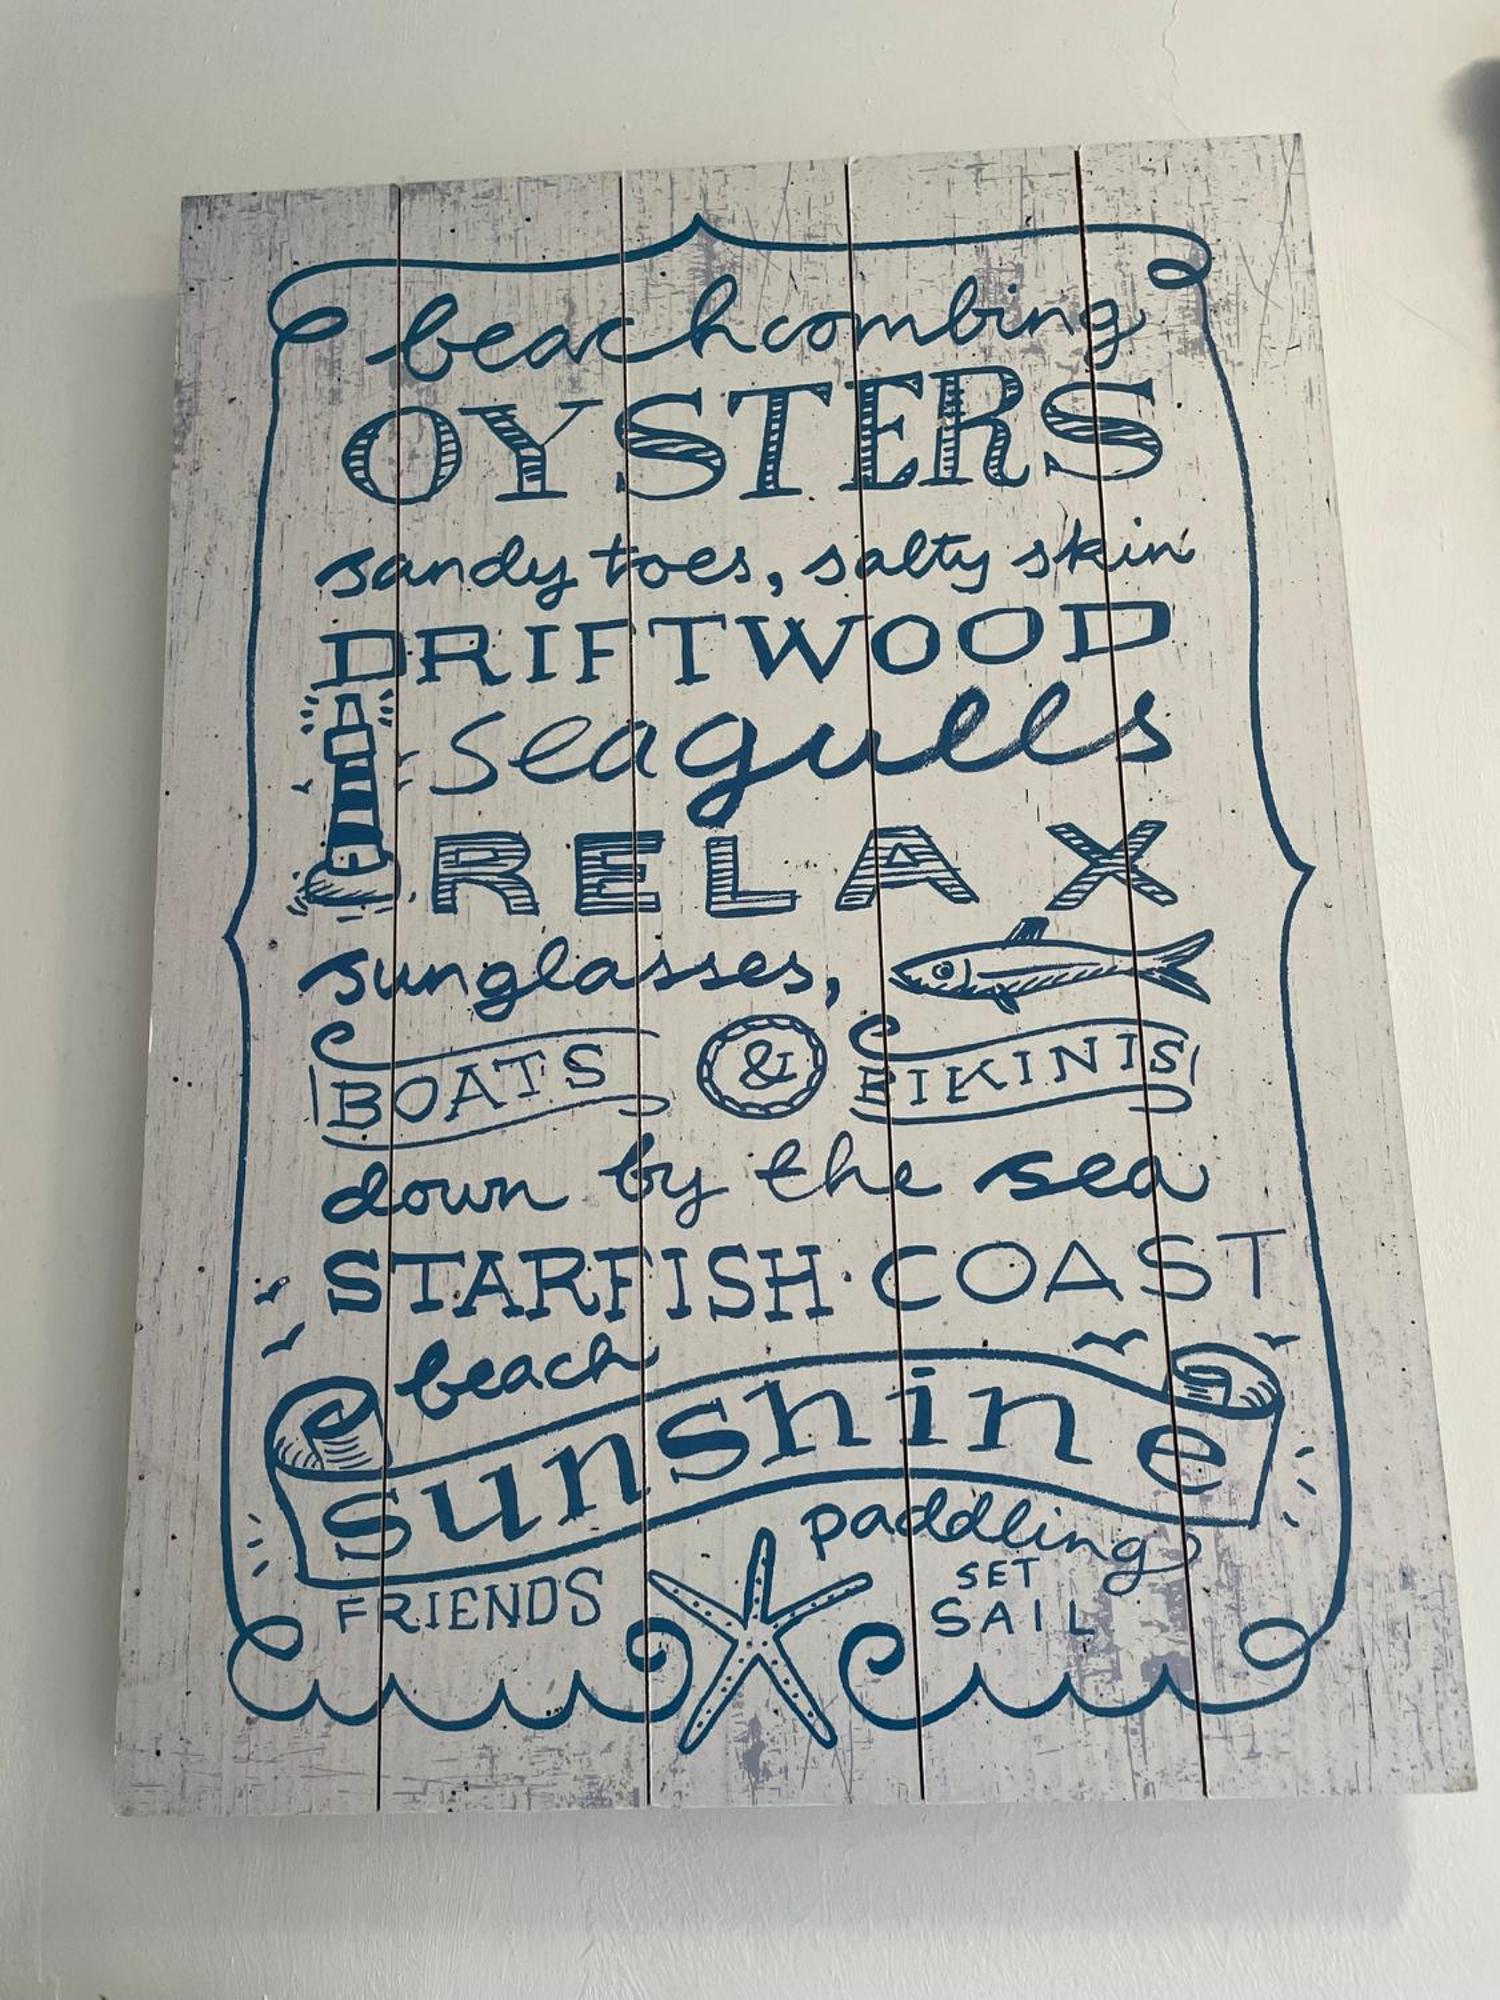 beachcombing
OYSTERS
sandy toes, salty skin
DRIFTWOOD
seagulls
RELAX
sunglasses,
BOATS & BIKINIS
down by the sea
STARFISH · COAST
beach
sunshine
paddling
FRIENDS
SET
SAIL